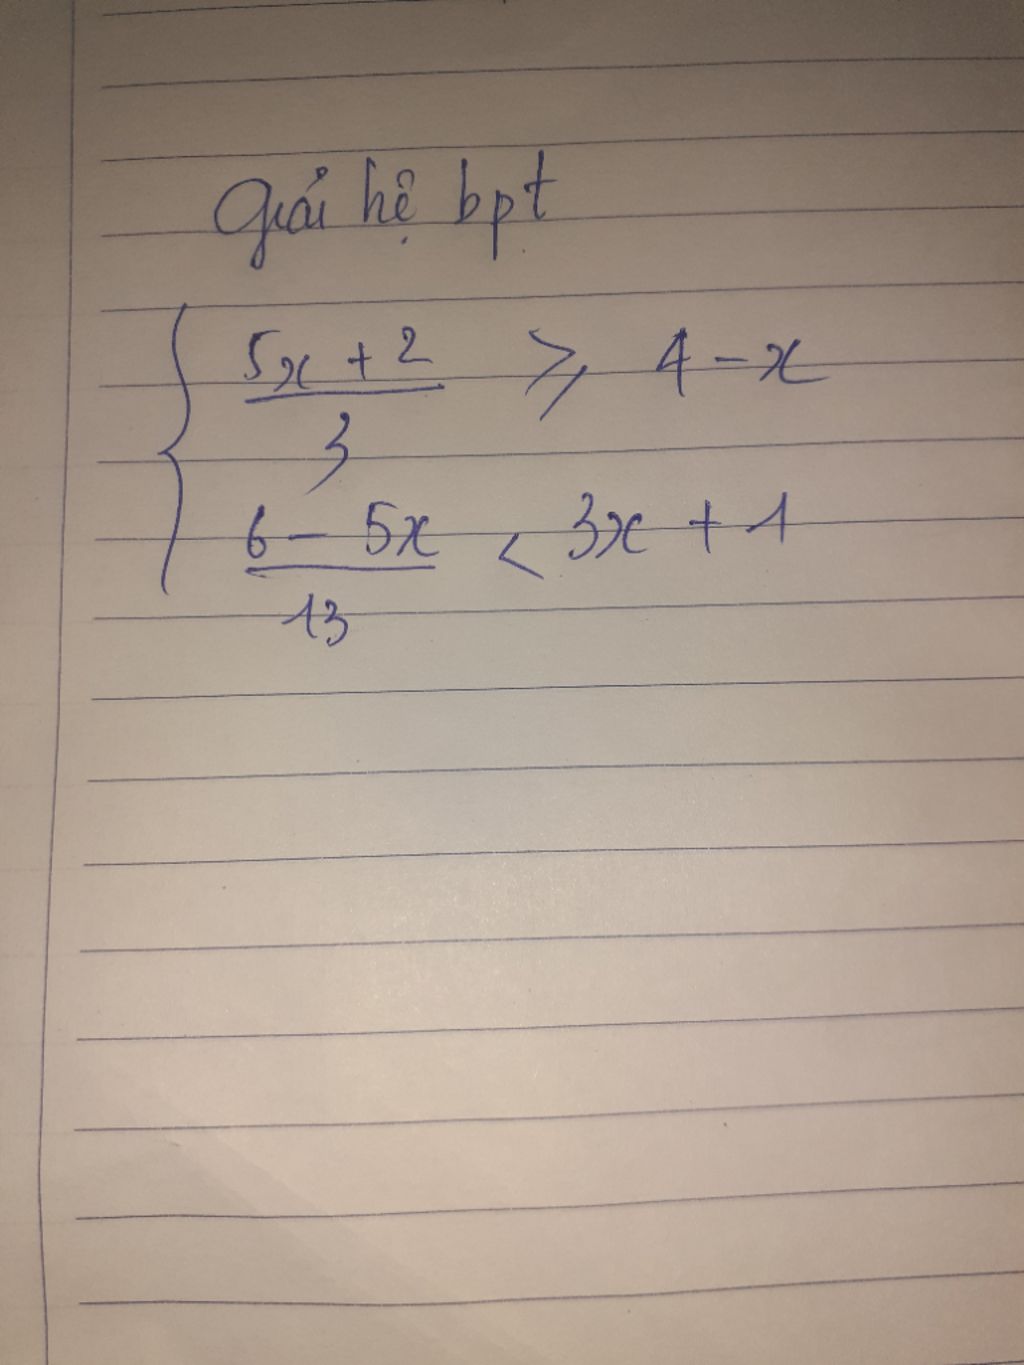 Giải hệ bpt
{ 5x + 2 / 3 ⩾ 4 - x
6 - 5x / 13 < 3x + 1